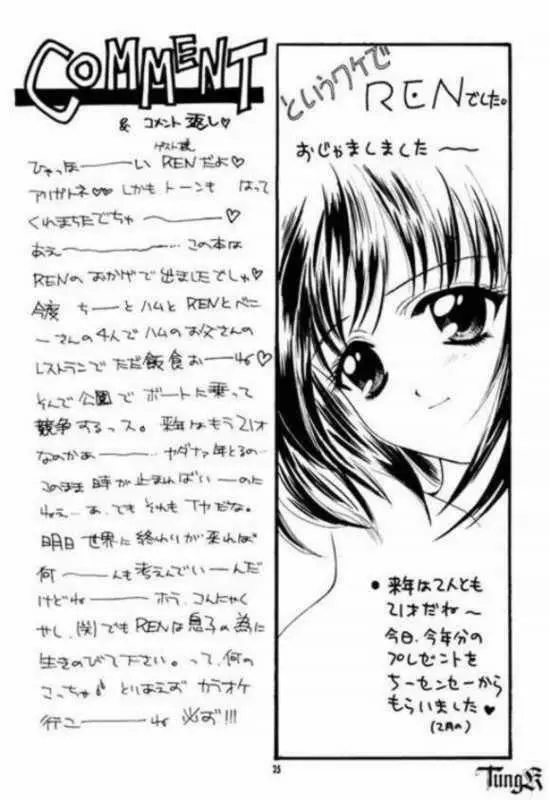 COMMENT
& コメント 返し♡
ゲスト様
ひゃっほーーーい RENだよ♡
アリガトネ♡♡ しかも トーンも はって
くれまちたでちゃ ーーーー♡
あえーーーー… この本は
RENの おかげで出ましたでしゅ♡
今度 ちーとハムと RENとべに
ーさんの4人で ハムのお父さんの
レストランで ただ飯食おーね♡
そんで公園で ボートに乗って
競争するっス。来年はもう21才
なのかぁーーー ヤダナァ年とるの…
このまま 時が止まればいーのに
ねぇ…あ、でも それも イヤだな。
明日 世界に終わりが来れば
何ーーんも考えんでいーんだ
けどねーー ホラ、コンにゃく
やし、(関)でもRENは息子の為に
生きのびて下さい。って、何の
こっちゃ♪ とりあえず カラオケ
行こーーーね 必ず!!!
というワケで
RENでした。
おじゃましました 〜
• 来年は2人とも
21才だね〜
今日、今年分の
プレゼントを
ちーセンセーから
もらいました♥
(2月の)
25
TungK